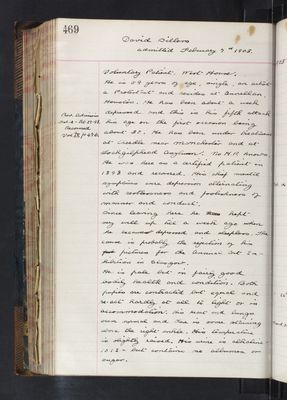 469
David Sillars
admitted February 7th 1905.
Voluntary Patient. West House.
He is 49 years of age, single, an artist
a Protestant and resides at
Houston. He has been about a week
depressed and this is his fifth attack
his age on the first occasion being
about 30. He has been under treatment
at Cheadle near Manchester and at
Lochgilphead Asylum. No H.H. known
He was here as a certified patient in
1898 and recovered. His chief mental
symptoms were depression alternating
with restlessness and
manner and conduct.
Since leaving here he has kept
very well up till a week ago when
he became depressed and sleepless. The
cause is probably the rejection of his
pictures for the Annual Art Ex-
hibition in Glasgow.
He is pale but in fairly good
bodily health and condition. Both
pupils are contracted but equal and
react hardly at all to light or in
accommodation. His heart and lungs
seem normal and there is some
over the right ankle. His temperature
is slightly raised. His urine is alkaline
but contains no albumen or
sugar.
Past Admission
Recovered